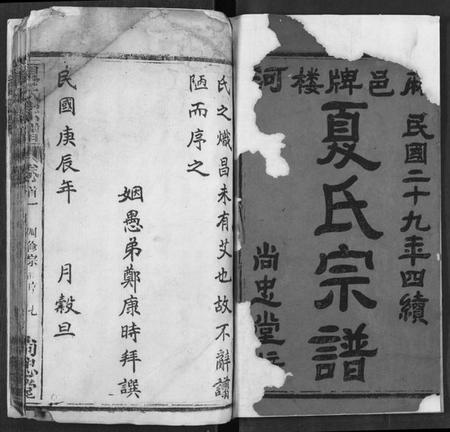 邑牌楼河
民國二十九年四續
夏氏宗譜
尚忠堂
氏之熾昌未有艾也故不辭譾
陋而序之
姻愚弟鄭康時拜譔
民國庚辰年 月穀旦
夏氏宗譜
尚忠堂